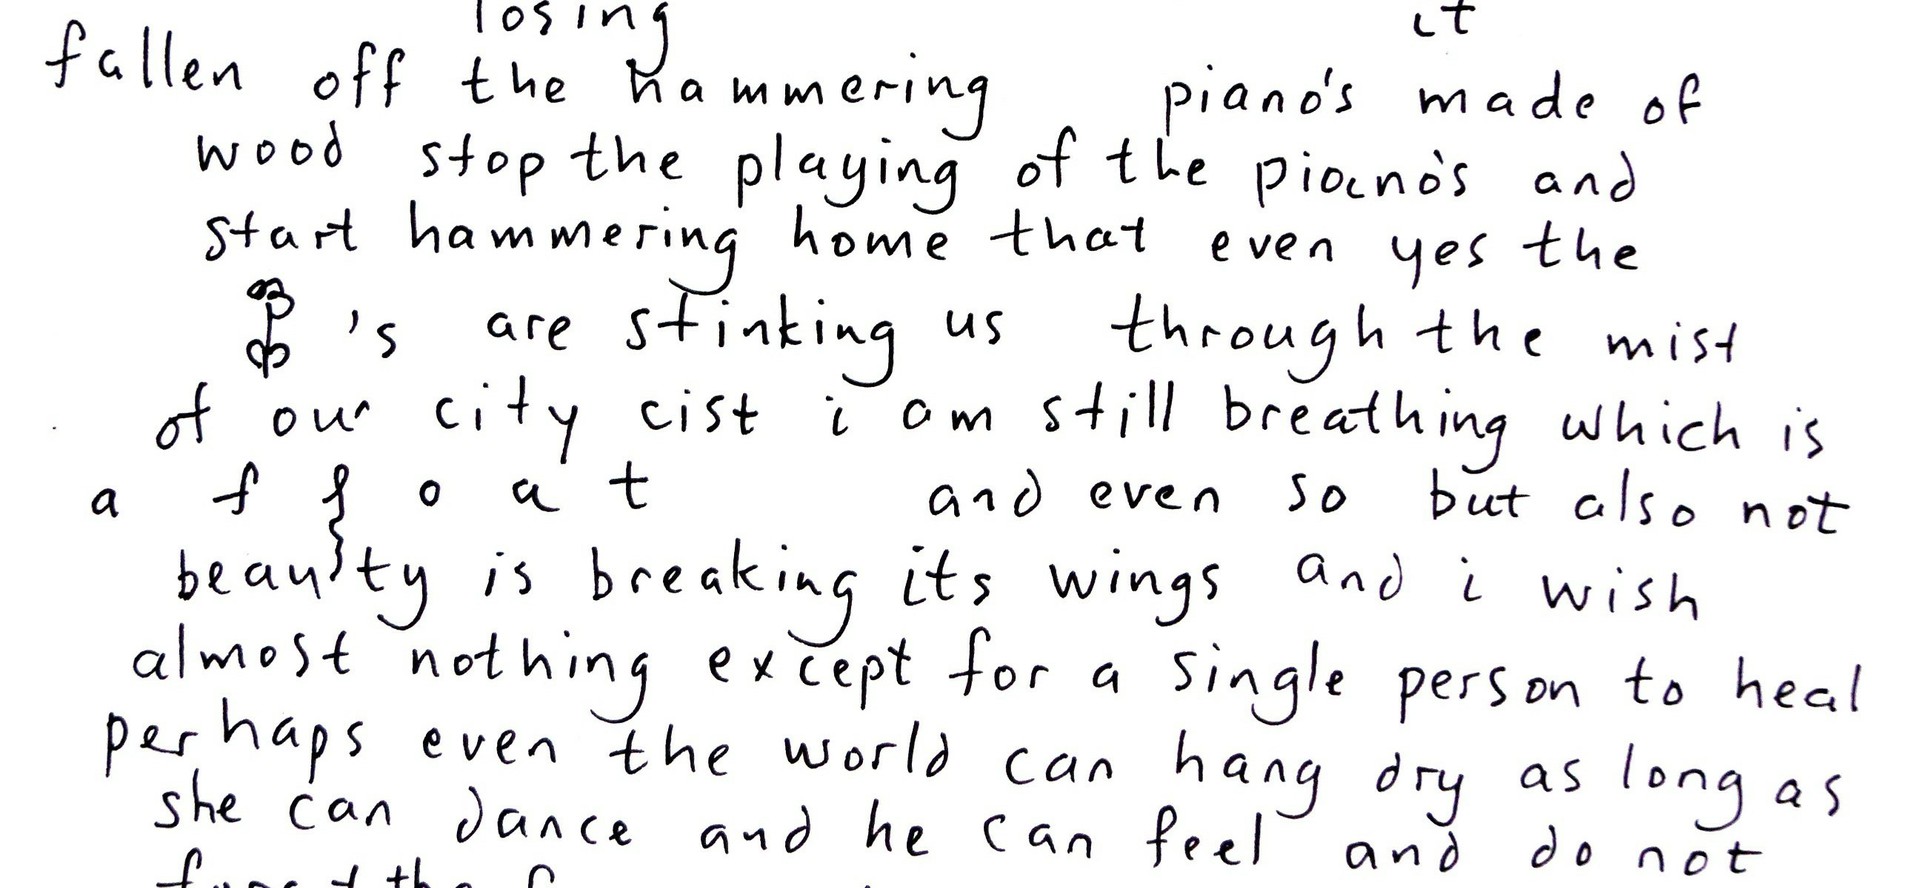 losing it
fallen off the hammering piano's made of
wood stop the playing of the piano's and
start hammering home that even yes the
's are stinking us through the mist
of our city cist i am still breathing which is
a f l o a t and even so but also not
beauty is breaking its wings and i wish
almost nothing except for a single person to heal
perhaps even the world can hang dry as long as
she can dance and he can feel and do not